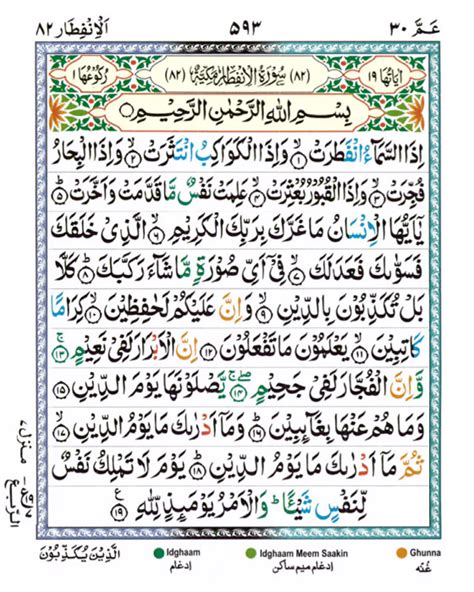 اَلْاِنْفِطَار ٨٢
۵۹۳
عَمَّ ٣٠
اٰيَاتُهَا ١٩
(٨٢) سُوْرَةُ الْاِنْفِطَارِ مَكِّيَّةٌ (٨٢)
رُكُوْعُهَا ١
بِسْمِ اللّٰهِ الرَّحْمٰنِ الرَّحِيْمِ
اِذَا السَّمَآءُ انْفَطَرَتْ ۙ﴿١﴾ وَاِذَا الْكَوَاكِبُ انْتَثَرَتْ ۙ﴿٢﴾ وَاِذَا الْبِحَارُ
فُجِّرَتْ ۙ﴿٣﴾ وَاِذَا الْقُبُوْرُ بُعْثِرَتْ ۙ﴿۴﴾ عَلِمَتْ نَفْسٌ مَّا قَدَّمَتْ وَاَخَّرَتْ ؕ﴿۵﴾
يٰۤاَيُّهَا الْاِنْسَانُ مَا غَرَّكَ بِرَبِّكَ الْكَرِيْمِ ۙ﴿۶﴾ الَّذِىْ خَلَقَكَ
فَسَوّٰىكَ فَعَدَلَكَ ۙ﴿۷﴾ فِىْۤ اَىِّ صُوْرَةٍ مَّا شَآءَ رَكَّبَكَ ؕ﴿۸﴾ كَلَّا
بَلْ تُكَذِّبُوْنَ بِالدِّيْنِ ۙ﴿۹﴾ وَاِنَّ عَلَيْكُمْ لَحٰفِظِيْنَ ۙ﴿۱۰﴾ كِرَامًا
كَاتِبِيْنَ ۙ﴿۱۱﴾ يَعْلَمُوْنَ مَا تَفْعَلُوْنَ ﴿۱۲﴾ اِنَّ الْاَبْرَارَ لَفِىْ نَعِيْمٍ ۚ﴿۱۳﴾
وَّاِنَّ الْفُجَّارَ لَفِىْ جَحِيْمٍ ﴿۱۴﴾ يَّصْلَوْنَهَا يَوْمَ الدِّيْنِ ﴿۱۵﴾
وَمَا هُمْ عَنْهَا بِغَآئِبِيْنَ ؕ﴿۱۶﴾ وَمَاۤ اَدْرٰىكَ مَا يَوْمُ الدِّيْنِ ۙ﴿۱۷﴾
ثُمَّ مَاۤ اَدْرٰىكَ مَا يَوْمُ الدِّيْنِ ؕ﴿۱۸﴾ يَوْمَ لَا تَمْلِكُ نَفْسٌ
لِّنَفْسٍ شَيْـًٔا ؕ وَالْاَمْرُ يَوْمَئِذٍ لِّلّٰهِ ﴿۱۹﴾
منزل ٧
الربع
اَلَّذِيْنَ يُكَذِّبُوْنَ
Idghaam
ادغام
Idghaam Meem Saakin
ادغام میم ساکن
Ghunna
غنّه